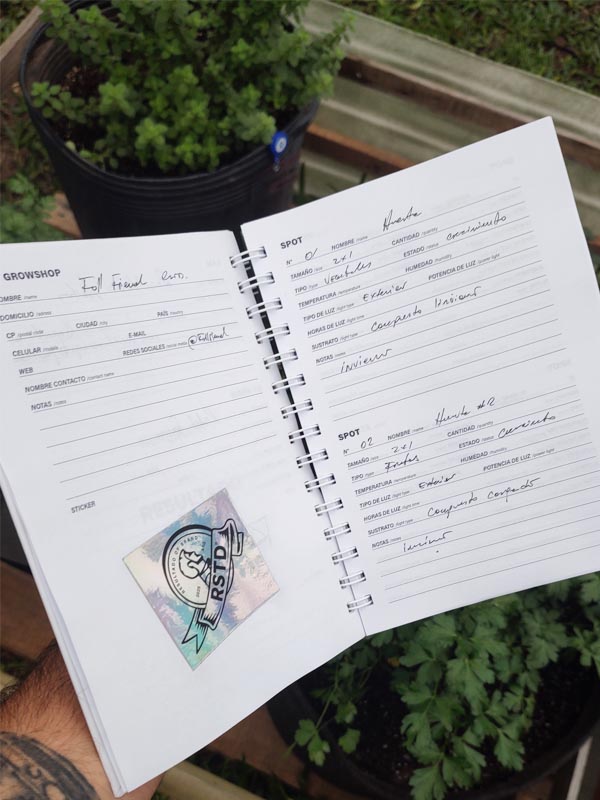 GROWSHOP
NOMBRE /name Full Friend
DOMICILIO /adress
CP /postal code CIUDAD /city PAÍS /country
CELULAR /mobile E-MAIL
WEB REDES SOCIALES /social media
NOMBRE CONTACTO /contact name
NOTAS /notes
STICKER
RSTD
2020
SPOT
N° 01 NOMBRE /name Huerta
TAMAÑO /size 2x1 CANTIDAD /quantity
TIPO /type Vegetales ESTADO /status crecimiento
TEMPERATURA /temperature HUMEDAD /humidity
TIPO DE LUZ /light type Exterior POTENCIA DE LUZ /power light
HORAS DE LUZ /light time
SUSTRATO /light type Compuesto
NOTAS /notes
invierno
SPOT
N° 02 NOMBRE /name Huerta #2
TAMAÑO /size 2x1 CANTIDAD /quantity
TIPO /type Frutas ESTADO /status Crecimiento
TEMPERATURA /temperature HUMEDAD /humidity
TIPO DE LUZ /light type Exterior POTENCIA DE LUZ /power light
HORAS DE LUZ /light time
SUSTRATO /light type Compuesto
NOTAS /notes